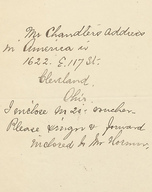 Mr Chandler's Address
in America is
1622. E. 117 St.
Cleveland,
Ohio.
I enclose Mr 2i- voucher.
Please sign & forward
enclosed to Mr Norman,